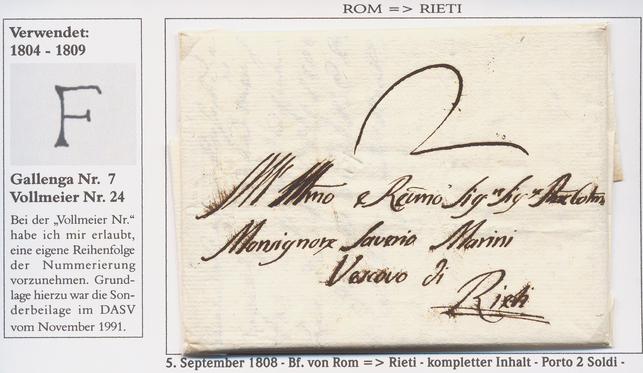 ROM => RIETI
Verwendet:
1804 - 1809
F
Gallenga Nr. 7
Vollmeier Nr. 24
Bei der „Vollmeier Nr.“
habe ich mir erlaubt,
eine eigene Reihenfolge
der Nummerierung
vorzunehmen. Grund-
lage hierzu war die Son-
derbeilage im DASV
vom November 1991.
2
All' Illmo e Revmo Sig.re Sig.re
Monsignore Saverio Marini
Vescovo di
Rieti
5. September 1808 - Bf. von Rom => Rieti - kompletter Inhalt - Porto 2 Soldi -